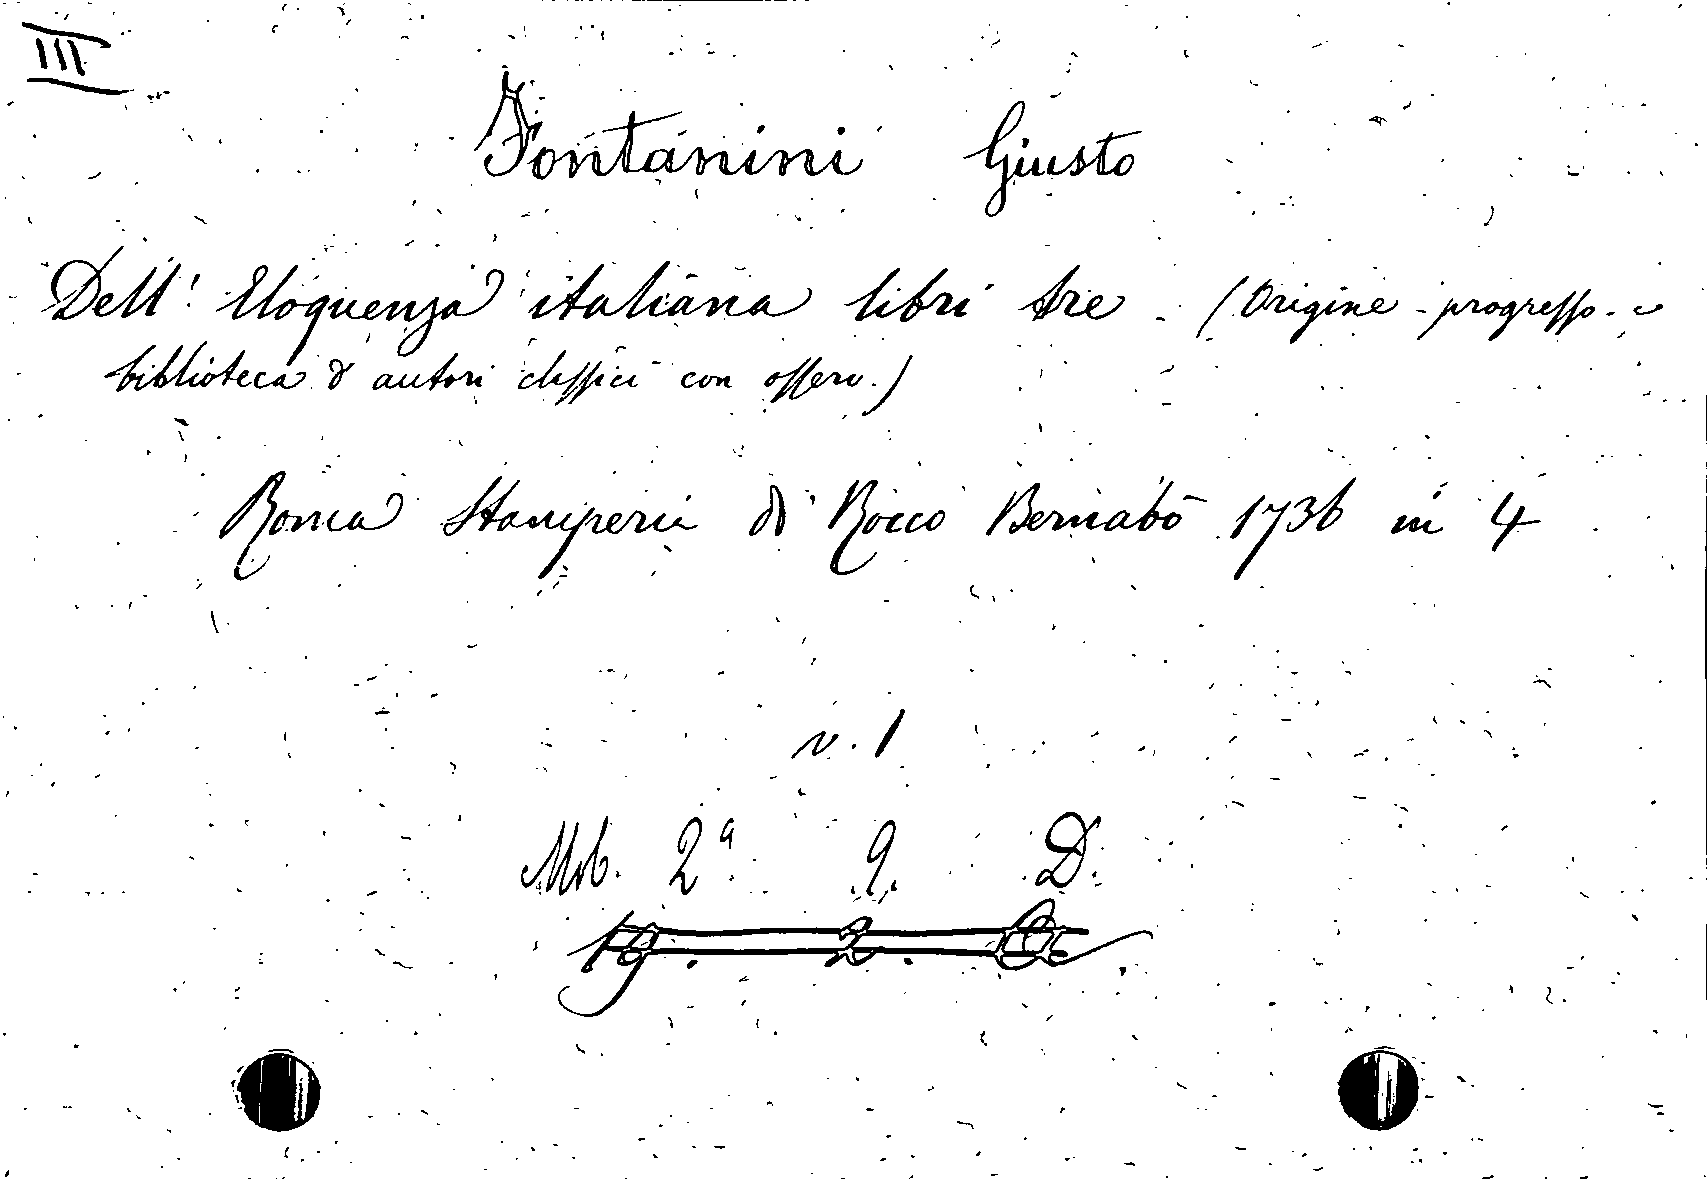 III
Fontanini Giusto
Dell' Eloquenza italiana libri tre - (Origine - progresso - e
biblioteca d' autori classici con osserv.)
Roma Stamperia di Rocco Bernabò 1736 in 4
v. 1
Mob. 2ª 9. D.
19. 2.